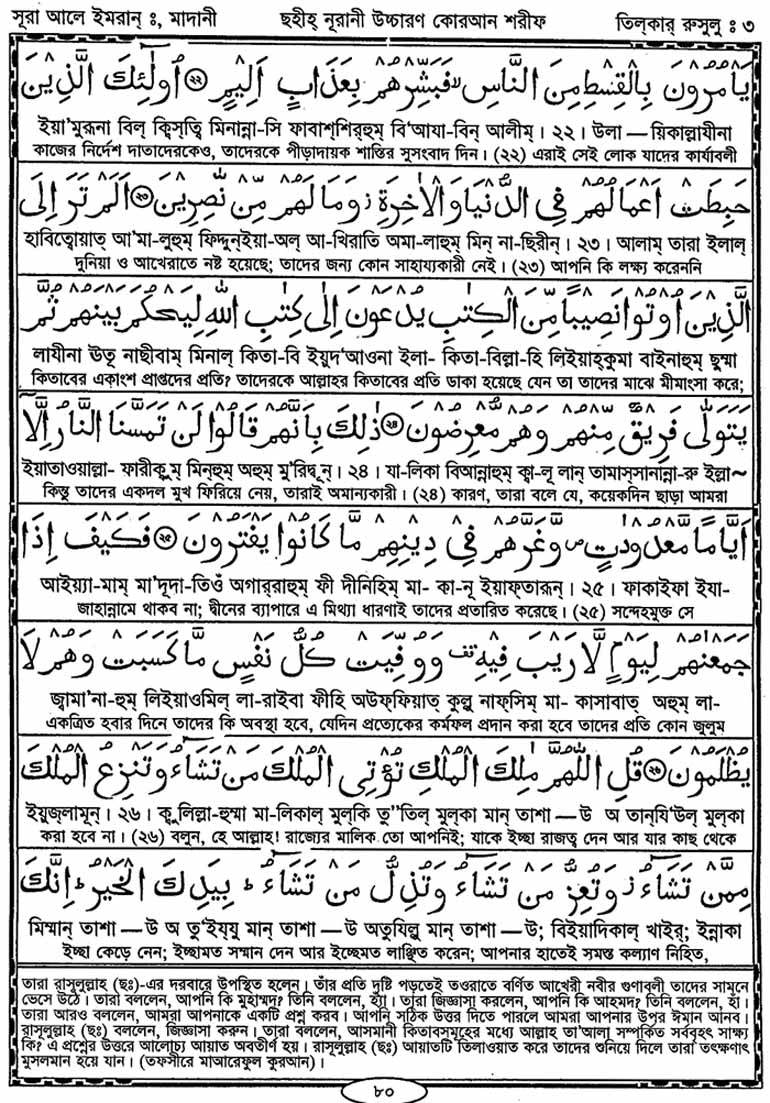 সূরা আলে ইমরান্ ঃ, মাদানী ছহীহ্ নূরানী উচ্চারণ কোরআন শরীফ তিল্‌কার্ রুসুলু ঃ ৩
يَاْمُرُوْنَ بِالْقِسْطِ مِنَ النَّاسِ ۙ فَبَشِّرْهُمْ بِعَذَابٍ اَلِيْمٍ ﴿۲۲﴾ اُولٰٓئِكَ الَّذِيْنَ
ইয়া'মুরূনা বিল্ ক্বিস্‌ত্বি মিনান্না-সি ফাবাশ্‌শির্‌হুম্ বি'আযা-বিন্ আলীম্। ২২। উলা — য়িকাল্লাযীনা
কাজের নির্দেশ দাতাদেরকেও, তাদেরকে পীড়াদায়ক শাস্তির সুসংবাদ দিন। (২২) এরাই সেই লোক যাদের কার্যাবলী
حَبِطَتْ اَعْمَالُهُمْ فِى الدُّنْيَا وَ الْاٰخِرَةِ ز وَمَا لَهُمْ مِّنْ نّٰصِرِيْنَ ﴿۲۳﴾ اَلَمْ تَرَ اِلَى
হাবিত্বোয়াত্ আ'মা-লুহুম্ ফিদ্দুন্‌ইয়া-অল্ আ-খিরাতি অমা-লাহুম্ মিন্ না-ছিরীন্। ২৩। আলাম্ তারা ইলাল্
দুনিয়া ও আখেরাতে নষ্ট হয়েছে; তাদের জন্য কোন সাহায্যকারী নেই। (২৩) আপনি কি লক্ষ্য করেননি
الَّذِيْنَ اُوْتُوْا نَصِيْبًا مِّنَ الْكِتٰبِ يُدْعَوْنَ اِلٰى كِتٰبِ اللهِ لِيَحْكُمَ بَيْنَهُمْ ثُمَّ
লাযীনা ঊতূ নাছীবাম্ মিনাল্ কিতা-বি ইয়ুদ'আওনা ইলা- কিতা-বিল্লা-হি লিইয়াহ্‌কুমা বাইনাহুম্ ছুম্মা
কিতাবের একাংশ প্রাপ্তদের প্রতি? তাদেরকে আল্লাহর কিতাবের প্রতি ডাকা হয়েছে যেন তা তাদের মাঝে মীমাংসা করে;
يَتَوَلّٰى فَرِيْقٌ مِّنْهُمْ وَهُمْ مُّعْرِضُوْنَ ﴿۲۴﴾ ذٰلِكَ بِاَنَّهُمْ قَالُوْا لَنْ تَمَسَّنَا النَّارُ اِلَّآ
ইয়াতাওয়াল্লা- ফারীক্বুম্ মিন্‌হুম্ অহুম্ মু'রিদ্বূন্। ২৪। যা-লিকা বিআন্নাহুম্ ক্বা-লূ লান্ তামাস্‌সানান্না-রু ইল্লা~
কিন্তু তাদের একদল মুখ ফিরিয়ে নেয়, তারাই অমান্যকারী। (২৪) কারণ, তারা বলে যে, কয়েকদিন ছাড়া আমরা
اَيَّامًا مَّعْدُوْدٰتٍ ص وَّغَرَّهُمْ فِىْ دِيْنِهِمْ مَّا كَانُوْا يَفْتَرُوْنَ ﴿۲۵﴾ فَكَيْفَ اِذَا
আইয়্যা-মাম্ মা'দূদা-তিওঁ অগার্‌রাহুম্ ফী দীনিহিম্ মা- কা-নূ ইয়াফ্‌তারূন্। ২৫। ফাকাইফা ইযা-
জাহান্নামে থাকব না; দ্বীনের ব্যাপারে এ মিথ্যা ধারণাই তাদের প্রতারিত করেছে। (২৫) সন্দেহমুক্ত সে
جَمَعْنٰهُمْ لِيَوْمٍ لَّا رَيْبَ فِيْهِ قف وَوُفِّيَتْ كُلُّ نَفْسٍ مَّا كَسَبَتْ وَهُمْ لَا
জ্বামা'না-হুম্ লিইয়াওমিল্ লা-রাইবা ফীহি অউফ্‌ফিয়াত্ কুল্লু নাফ্‌সিম্ মা- কাসাবাত্ অহুম্ লা-
একত্রিত হবার দিনে তাদের কি অবস্থা হবে, যেদিন প্রত্যেকের কর্মফল প্রদান করা হবে তাদের প্রতি কোন জুলুম
يُظْلَمُوْنَ ﴿۲۶﴾ قُلِ اللّٰهُمَّ مٰلِكَ الْمُلْكِ تُؤْتِى الْمُلْكَ مَنْ تَشَآءُ وَتَنْزِعُ الْمُلْكَ
ইয়ুজ্‌লামূন্। ২৬। ক্বুলিল্লা-হুম্মা মা-লিকাল্ মুল্‌কি তু''তিল্ মুল্‌কা মান্ তাশা — উ অ তান্‌যি'উল্ মুল্‌কা
করা হবে না। (২৬) বলুন, হে আল্লাহ! রাজ্যের মালিক তো আপনিই; যাকে ইচ্ছা রাজত্ব দেন আর যার কাছ থেকে
مِمَّنْ تَشَآءُ ز وَتُعِزُّ مَنْ تَشَآءُ وَتُذِلُّ مَنْ تَشَآءُ ط بِيَدِكَ الْخَيْرُ ط اِنَّكَ
মিম্মান্ তাশা — উ অ তু'ইয্‌যু মান্ তাশা — উ অতুযিল্লু মান্ তাশা — উ; বিইয়াদিকাল্ খাইর্; ইন্নাকা
ইচ্ছা কেড়ে নেন; ইচ্ছামত সম্মান দেন আর ইচ্ছেমত লাঞ্ছিত করেন; আপনার হাতেই সমস্ত কল্যাণ নিহিত,
তারা রাসূলুল্লাহ (ছঃ)-এর দরবারে উপস্থিত হলেন। তাঁর প্রতি দৃষ্টি পড়তেই তওরাতে বর্ণিত আখেরী নবীর গুণাবলী তাদের সামনে
ভেসে উঠে। তারা বললেন, আপনি কি মুহাম্মদ? তিনি বললেন, হ্যাঁ। তারা জিজ্ঞাসা করলেন, আপনি কি আহমদ? তিনি বললেন, হাঁ।
তারা আরও বললেন, আমরা আপনাকে একটি প্রশ্ন করব। আপনি সঠিক উত্তর দিতে পারলে আমরা আপনার উপর ঈমান আনব।
রাসূলুল্লাহ (ছঃ) বললেন, জিজ্ঞাসা করুন। তারা বললেন, আসমানী কিতাবসমূহের মধ্যে আল্লাহ তা'আলা সম্পর্কিত সর্ববৃহৎ সাক্ষ্য
কি? এ প্রশ্নের উত্তরে আলোচ্য আয়াত অবতীর্ণ হয়। রাসূলুল্লাহ (ছঃ) আয়াতটি তিলাওয়াত করে তাদের শুনিয়ে দিলে তারা তৎক্ষণাৎ
মুসলমান হয়ে যান। (তফসীরে মাআরেফুল কুরআন)।
৮০